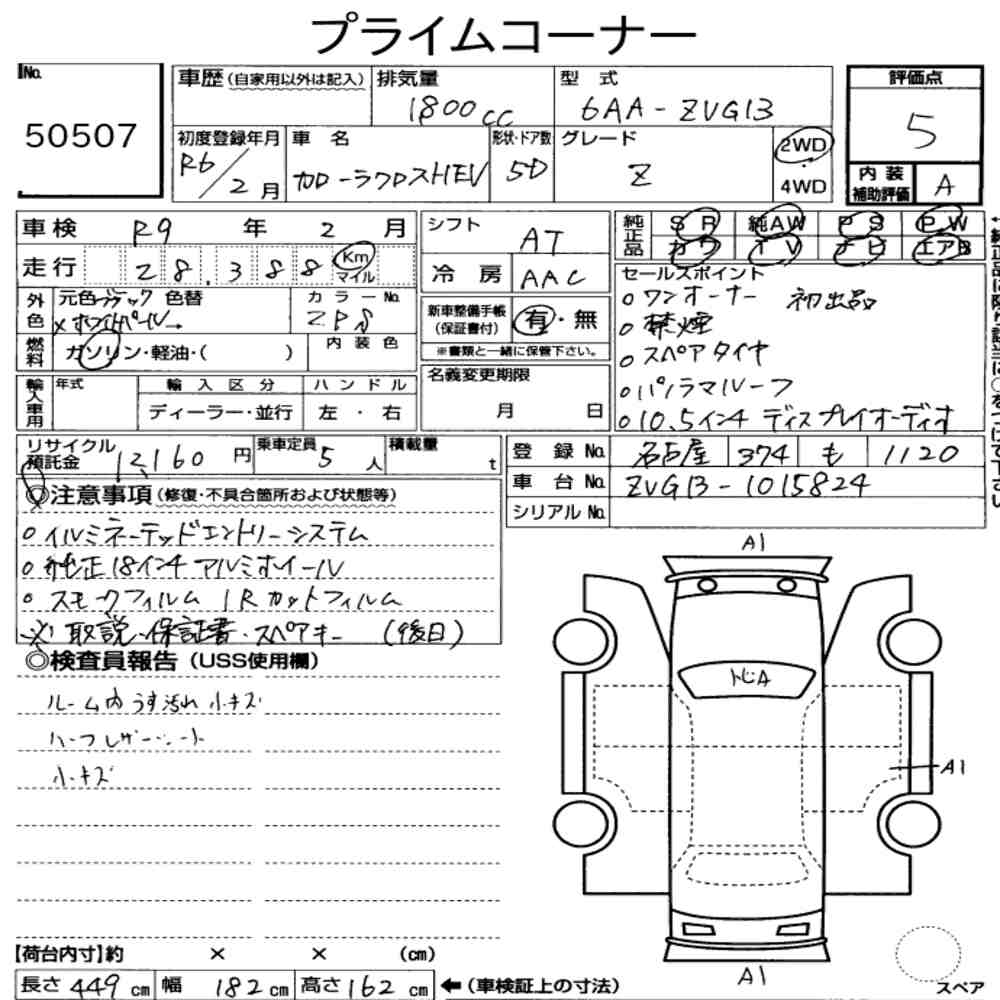 プライムコーナー
No.
50507
車歴(自家用以外は記入)
排気量
1800cc
型式
6AA-ZVG13
評価点
5
初度登録年月
R6/2月
車名
カローラクロスHEV
形状・ドア数
5D
グレード
Z
2WD
・
4WD
内装
補助評価
A
車検 R9年 2月
走行 28,388 Km
マイル
シフト
AT
冷房 AAC
純正品
SR 純AW PS PW
カワ TV ナビ エアB
セールスポイント
○ワンオーナー 初出品
○禁煙
○スペアタイヤ
○パノラマルーフ
○10.5インチ ディスプレイオーディオ
外色
元色 ブラック 色替
×ホワイトパール
カラーNo.
2PS
燃料
ガソリン・軽油・( )
内装色
新車整備手帳
(保証書付)
有・無
※書類と一緒に保管下さい。
輸入車用
年式
輸入区分
ハンドル
ディーラー・並行
左・右
名義変更期限
月 日
リサイクル
預託金 12,160円
乗車定員
5人
積載量
t
登録No. 名古屋 374 も 1120
車台No. ZVG13-1015824
シリアルNo.
◎注意事項(修復・不具合箇所および状態等)
○イルミネーテッドエントリーシステム
○純正18インチアルミホイール
○スモークフィルム IRカットフィルム
※取説・保証書・スペアキー (後日)
◎検査員報告(USS使用欄)
ルーム内うす汚れ 小キズ
ハーフレザーシート
小キズ
A1
トビA
A1
A1
スペア
【荷台内寸】約 × × (cm)
長さ449cm 幅182cm 高さ162cm ←(車検証上の寸法)